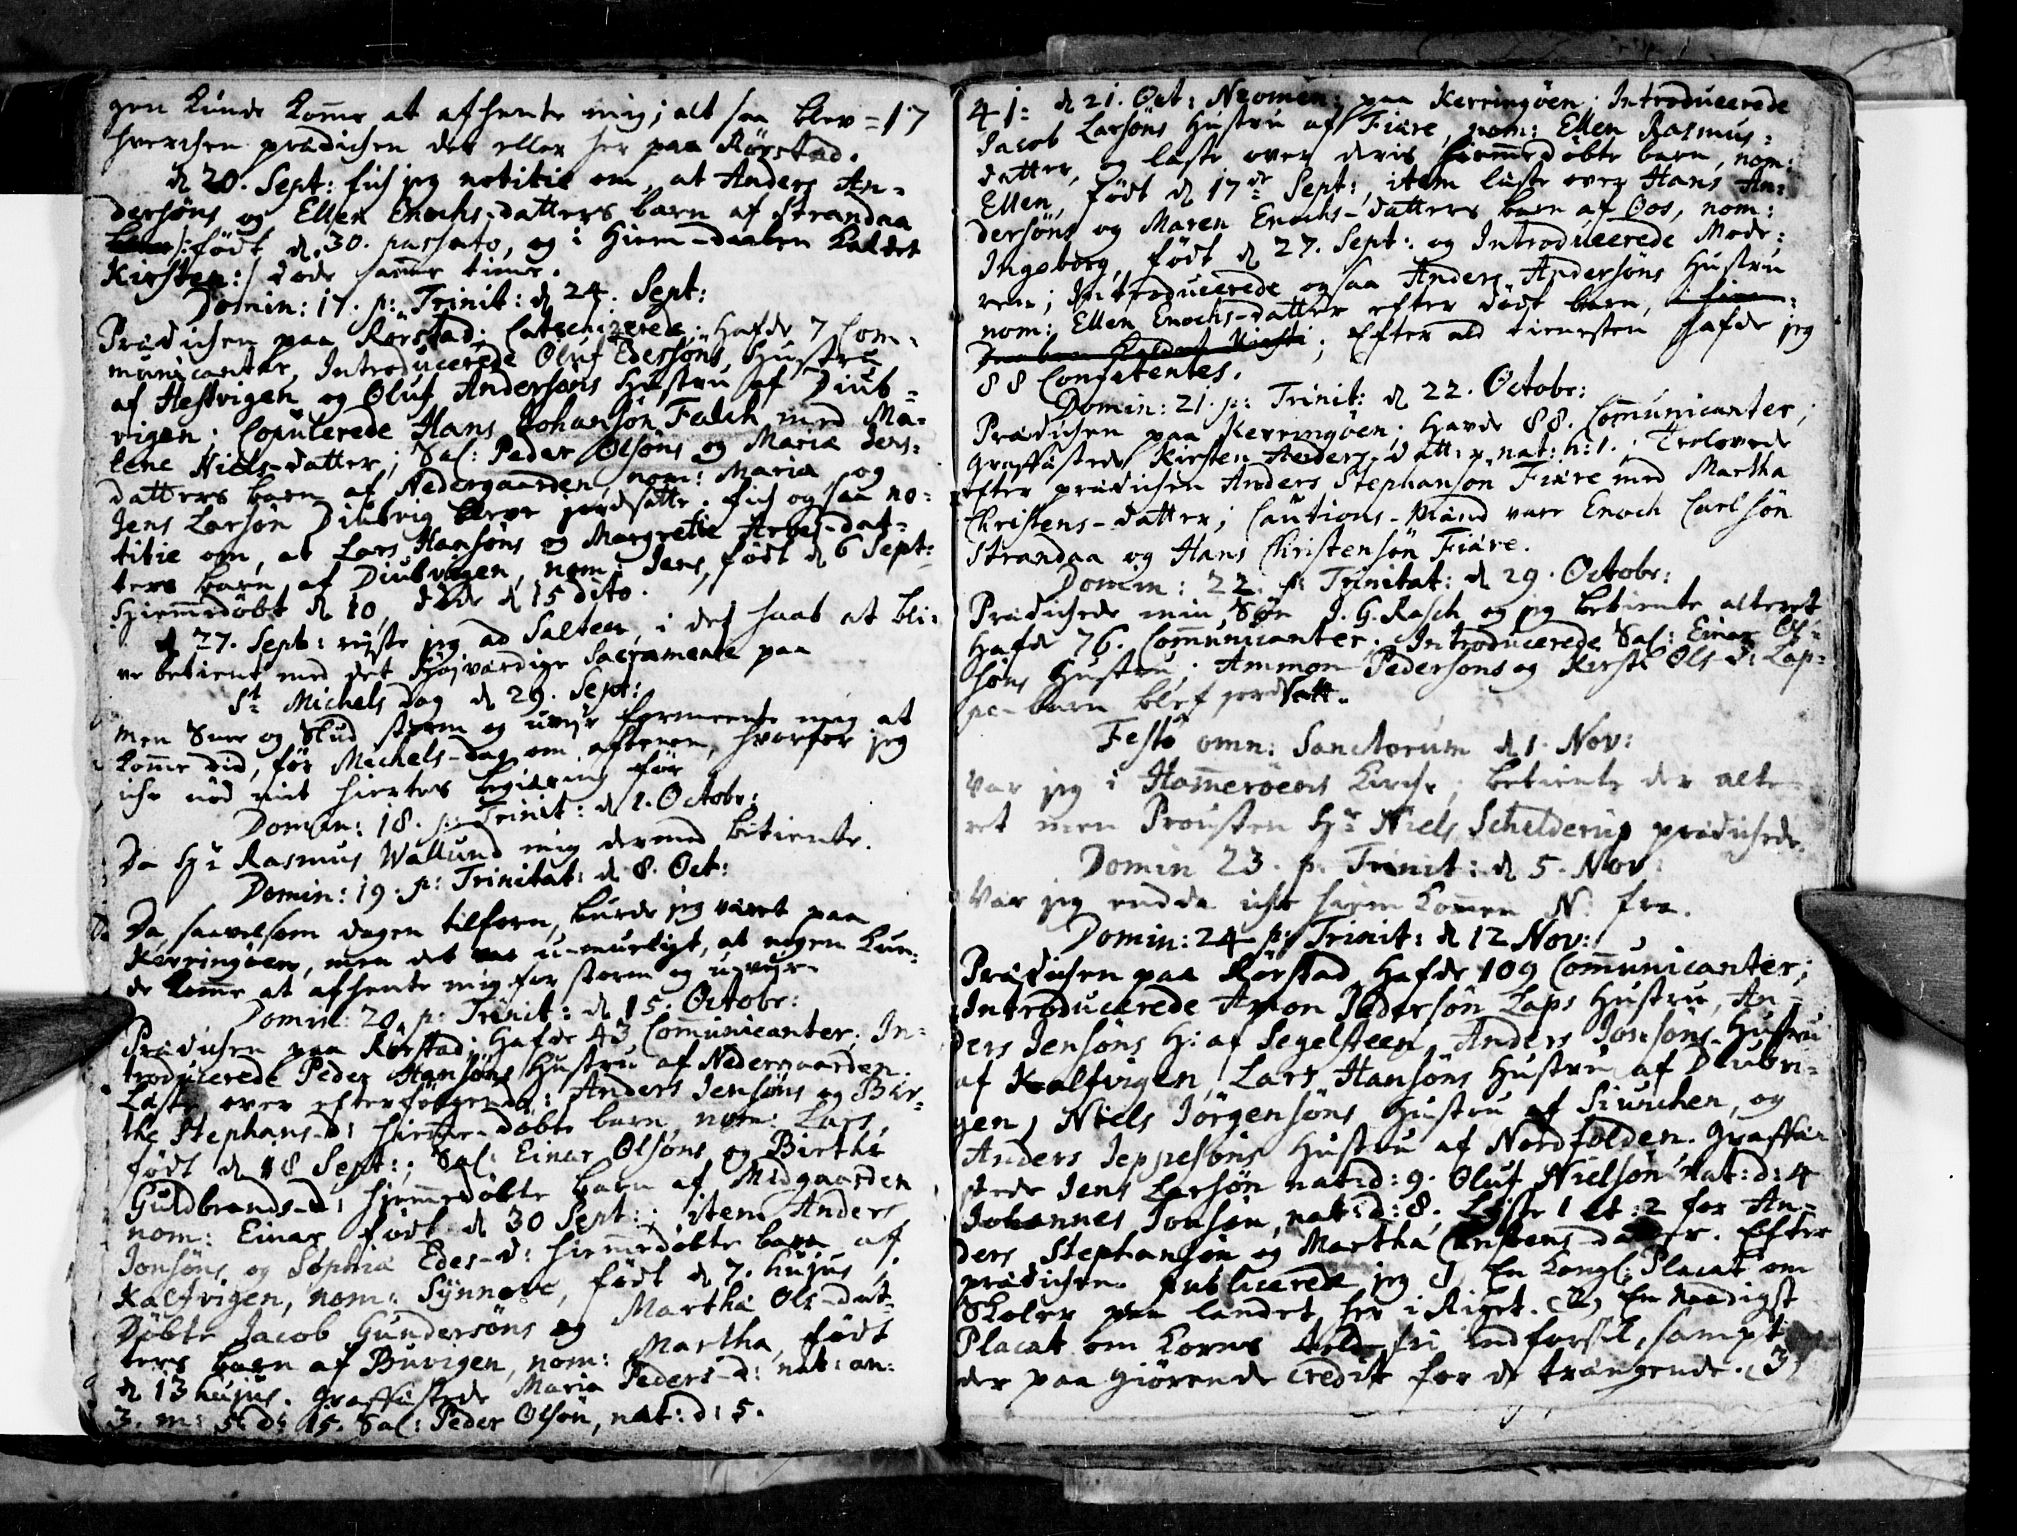 gen kunde komme at afhente mig; alt saa blev = 17
hverchen prædichen der eller her paa Rørstad.
d 20. Sept: fich jeg notitie om, at Anders An-
dersøns og Ellen Enochs-datters barn af Strandaa
født d. 30. passato, og i Hiem-daaben kaldet
Kirsten:/ døde samme time.
Domin: 17. p: Trinit: d 24. Sept:
Prædichen paa Rørstad; Catechizerede; Hafde 7 Com-
municanter, Introducerede Oluf Edersøns Hustru
af Hestvigen og Oluf Andersøns Hustru af Diub-
vigen; Copulerede Hans Johansøn Falch med Ma-
lene Niels-datter; Sal: Peder Olsøns og Maria Jens-
datters barn af Nedergaarden, nom: Maria, og
Jens Larsøn Diubvig bleve jordsatte. fich og saa no-
titie om, at Lars Hansøns og Margrette Arnes-dat-
ters barn af Diubvigen, nom: Jens, født d 6 Sept:
Hiemmedøbt d 10, døde d 15 dito.
d 27. Sept: reyste jeg ad Salten, i det haab at bli-
ve betient med det Høyværdige Sacramente paa
St Michels dag d 29. Sept:
men Snee og Slud storm og uveyr formeente mig at
komme did, før Michels-dag om aftenen, hvorfor jeg
iche nød mit hiertes begiering før
Domin: 18. p: Trinit: d 1. Octobr:
Da Hr Rasmus Wallund mig dermed betiente.
Domin: 19. p: Trinitat: d 8. Oct:
Da saavelsom dagen tilforn, burde jeg været paa
Kerringøen, men det var u-mueligt, at nogen kun-
de komme at afhente mig for storm og u-veyr.
Domin: 20. p: Trinit: d 15. Octobr:
Prædichen paa Rørstad; Hafde 43 Communicanter; In-
troducerede Peder Hansøns Hustru af Nedergaarden.
Læste over efterfølgende: Anders Jensøns og Bir-
the Stephans-d: Hiemme-døbte barn, nom: Lars,
født d 18 Sept:; Sal: Einar Olsøns og Birthe
Guldbrands-d: hjemmedøbte barn af Midgaarden
nom: Einar født d 30 Sept:; item Anders
Jonsøns og Sophia Edes-d: hiemmedøbte barn af
Kalfvigen, nom: Synnove, født d 7. hujus;
Døbte Jacob Gundersøns og Martha Ols-dat-
ters barn af Buvigen, nom: Martha, født
d 13 hujus. Graffæstede Maria Peders-d: nat: an:
3. m: 5. d: 15. Sal: Peder Olsøn, nat: d: 5.
41: d 21. Oct: Neomen: paa Kerringøen; Introducerede
Jacob Larsøns Hustru af Fiære, nom: Ellen Rasmus-
datter, og læste over deris hiemmedøbte barn, nom:
Ellen, født d 17de Sept:, item læste over Hans An-
dersøns og Maren Enochs-datters barn af Oos, nom:
Ingeborg, født d 27. Sept: og Introducerede Mode-
ren; Introducerede ogsaa Anders Andersøns Hustru
nom: Ellen Enochs-datter efter dødt barn,
; Efter ald tienesten hafde jeg
88 Confitentes.
Domin: 21. p: Trinit: d 22. Octobr:
Prædichen paa Kerringøen; Havde 88. Communicanter;
Graffæstede Kirsten Anders-datt: nat: h: 1.; Trolovede
efter prædichen Anders Stephansøn Fiære med Martha
Christens-datter; Cautions-Mænd vare Enoch Carlsøn
Strandaa og Hans Christensøn Fiære.
Domin: 22. p: Trinitat: d 29. Octobr:
Prædichede min Søn J. G. Rasch og jeg betiente alteret
Hafde 76. Communicanter. Introducerede Sal: Einar Ol-
søns Hustru; Ammon Pedersøns og Kirsti Ols-d: Lap-
pe-barn blef jordsatt.
Festo omn: Sanctorum d 1. Nov:
Var jeg i Hammerøens Kirche; betiente der alte-
ret men Provsten Hr Niels Schelderup prædichede.
Domin 23. p. Trinit: d 5. Nov:
Var jeg endda iche hiem kommen N. fra.
Domin: 24 p: Trinit: d 12 Nov:
Prædichen paa Rørstad Hafde 109 Communicanter;
Introducerede Amon Pedersøn Laps Hustru, An-
ders Jensøns H: af Segelsteen, Anders Jonsøns Hustru
af Kalfvigen, Lars Hansøns Hustru af Diubvi-
gen, Niels Jørgensøns Hustru af Siurchen, og
Anders Jeppesøns Hustru af Nordfolden. Graffæ-
stede Jens Larsøn nat: d: 9. Oluf Nielsøn nat: d: 4
Johannes Jonsøn, nat: d: 8. Lyste 1 et: 2 for An-
ders Stephansøn og Martha Christens-datter. Efter
prædichen publicerede jeg 1) En Kongl: Placat om
Skoler paa landet her i Riget. (2) En Naadigst
Placat om Korns told-fri indførsel, sampt
der paa giørende credit for de trængende. (3)